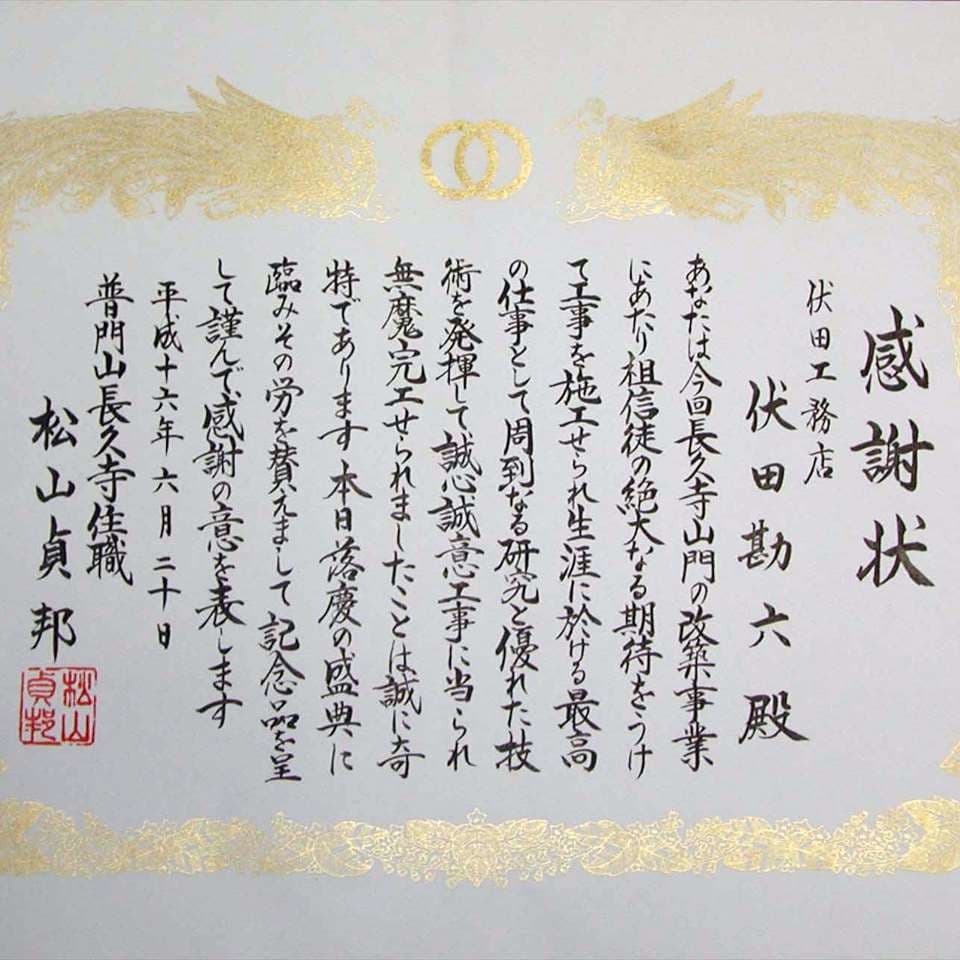 感謝状
伏田工務店
伏田勘六殿
あなたは今回長久寺山門の改築事業
にあたり祖信徒の絶大なる期待をうけ
て工事を施工せられ生涯に於ける最高
の仕事として周到なる研究と優れた技
術を発揮して誠心誠意工事に当られ
無魔完工せられましたことは誠に奇
特であります本日落慶の盛典に
臨みその労を賛えまして記念品を呈
して謹んで感謝の意を表します
平成十六年六月二十日
普門山長久寺住職
松山貞邦
松山
貞邦